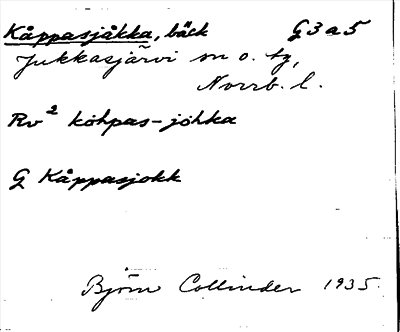 Kåppasjåkka, bäck G3a5
Jukkasjärvi sn o. tg,
Norrb. l.
Rv² kohpas-johka
G Kåppasjokk
Björn Collinder 1935.